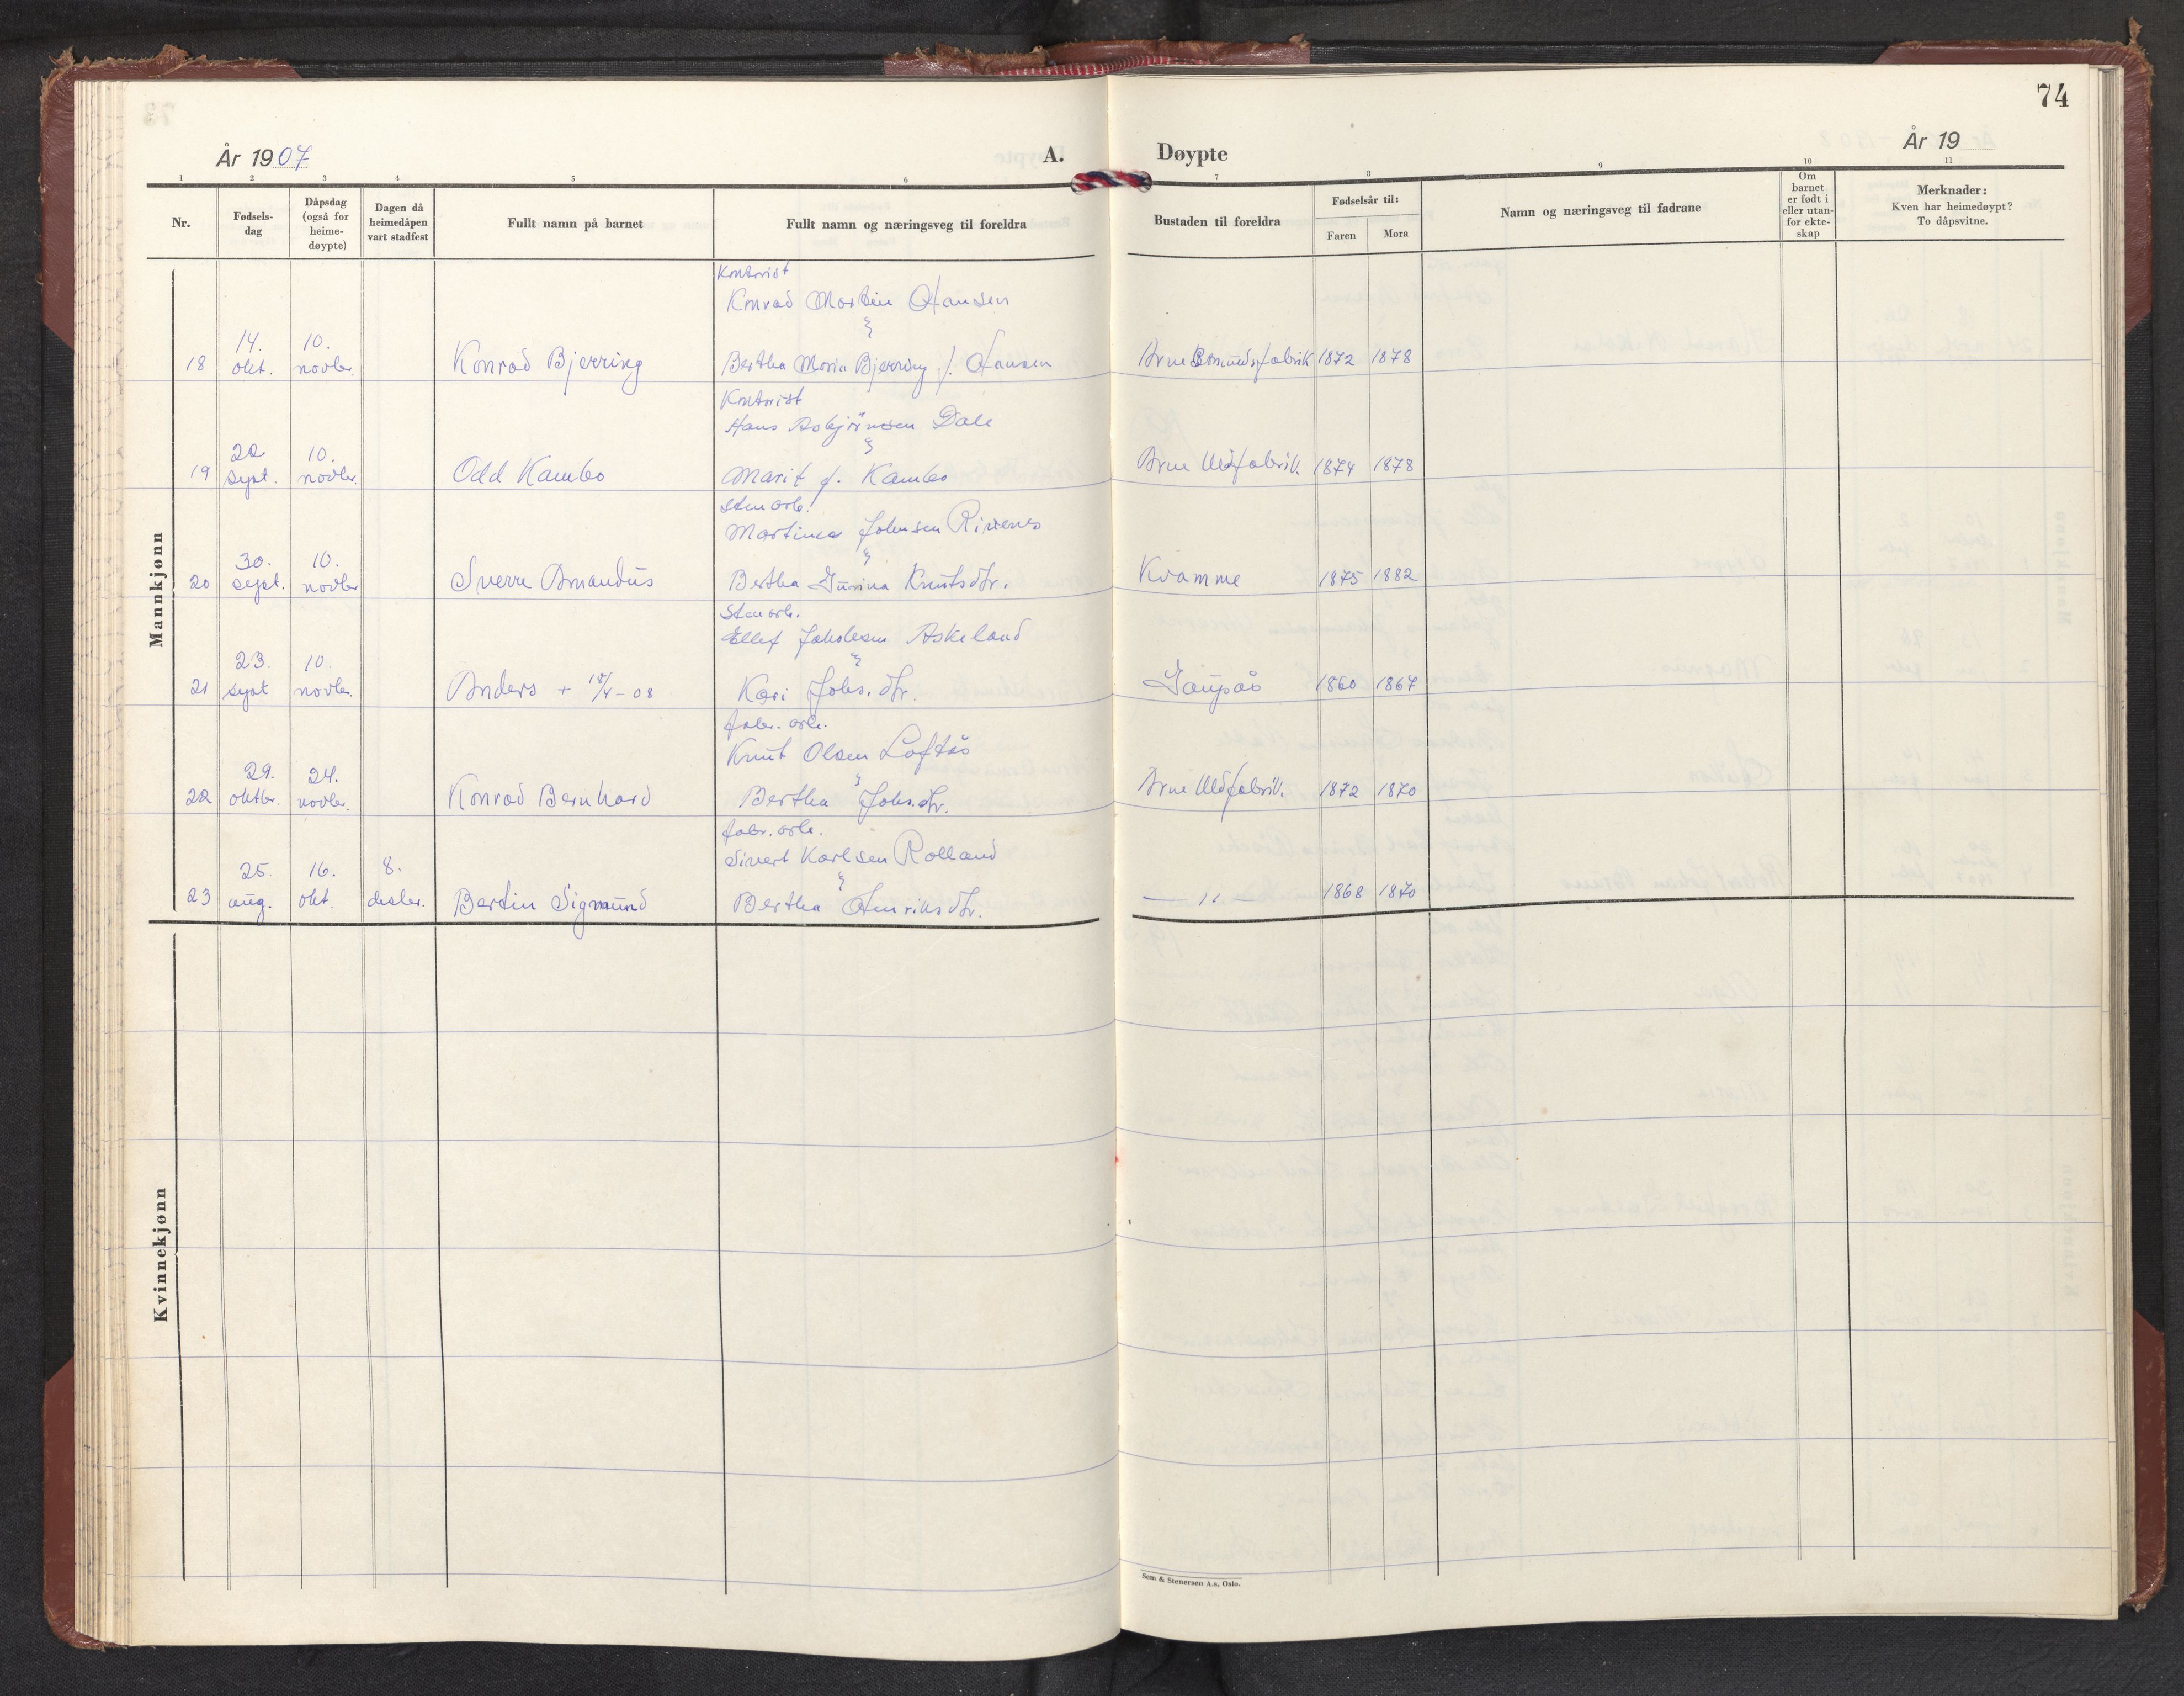 74
År 1907
A.
Døypte
År 19
1 2 3 4 5 6 7 8 9 10 11
Nr.
Fødsels-
dag
Dåpsdag
(også for
heime-
døypte)
Dagen då
heimedåpen
vart stadfest
Fullt namn på barnet
Fullt namn og næringsveg til foreldra
Bustaden til foreldra
Fødselsår til:
Faren Mora
Namn og næringsveg til fadrane
Om
barnet
er født i
eller utan-
for ekte-
skap
Merknader:
Kven har heimedøypt?
To dåpsvitne.
Mannkjønn
Kontorist
Konrad Martin Hansen
14. 10.
18 okt. novbr. Konrad Bjerring Bertha Maria Bjerring f. Hansen Arne 1872 1878
Kontorist
Hans Asbjörnsen Dale
22 10.
19 sept. novbr. Odd Kambo Marit f. Kambo Arne Uldfabrik. 1874 1878
Stenarb.
Martinus Johnsen Rivenes
30. 10.
20 sept. novbr Sverre Amandus Bertha Gurina Knutsdtr. Kvamme 1875 1882
Stenarb.
Ellef Jakobsen Askeland
23. 10.
21 sept novbr. Anders + /4-08 Kari Johs.dtr. Gaupås 1860 1867
fabr. arb.
Knut Olsen Loftås
29. 24.
22 oktbr. novbr. Konrad Bernhard Bertha Johs.dtr. Arne Uldfabrik. 1872 1870
fabr. arb.
Sivert Karlsen Rolland
25. 16. 8.
23 aug. okt. desbr. Bertin Sigmund Bertha Henriksdtr. — " — 1868 1870
Kvinnekjønn
Sem & Stenersen A.s, Oslo.